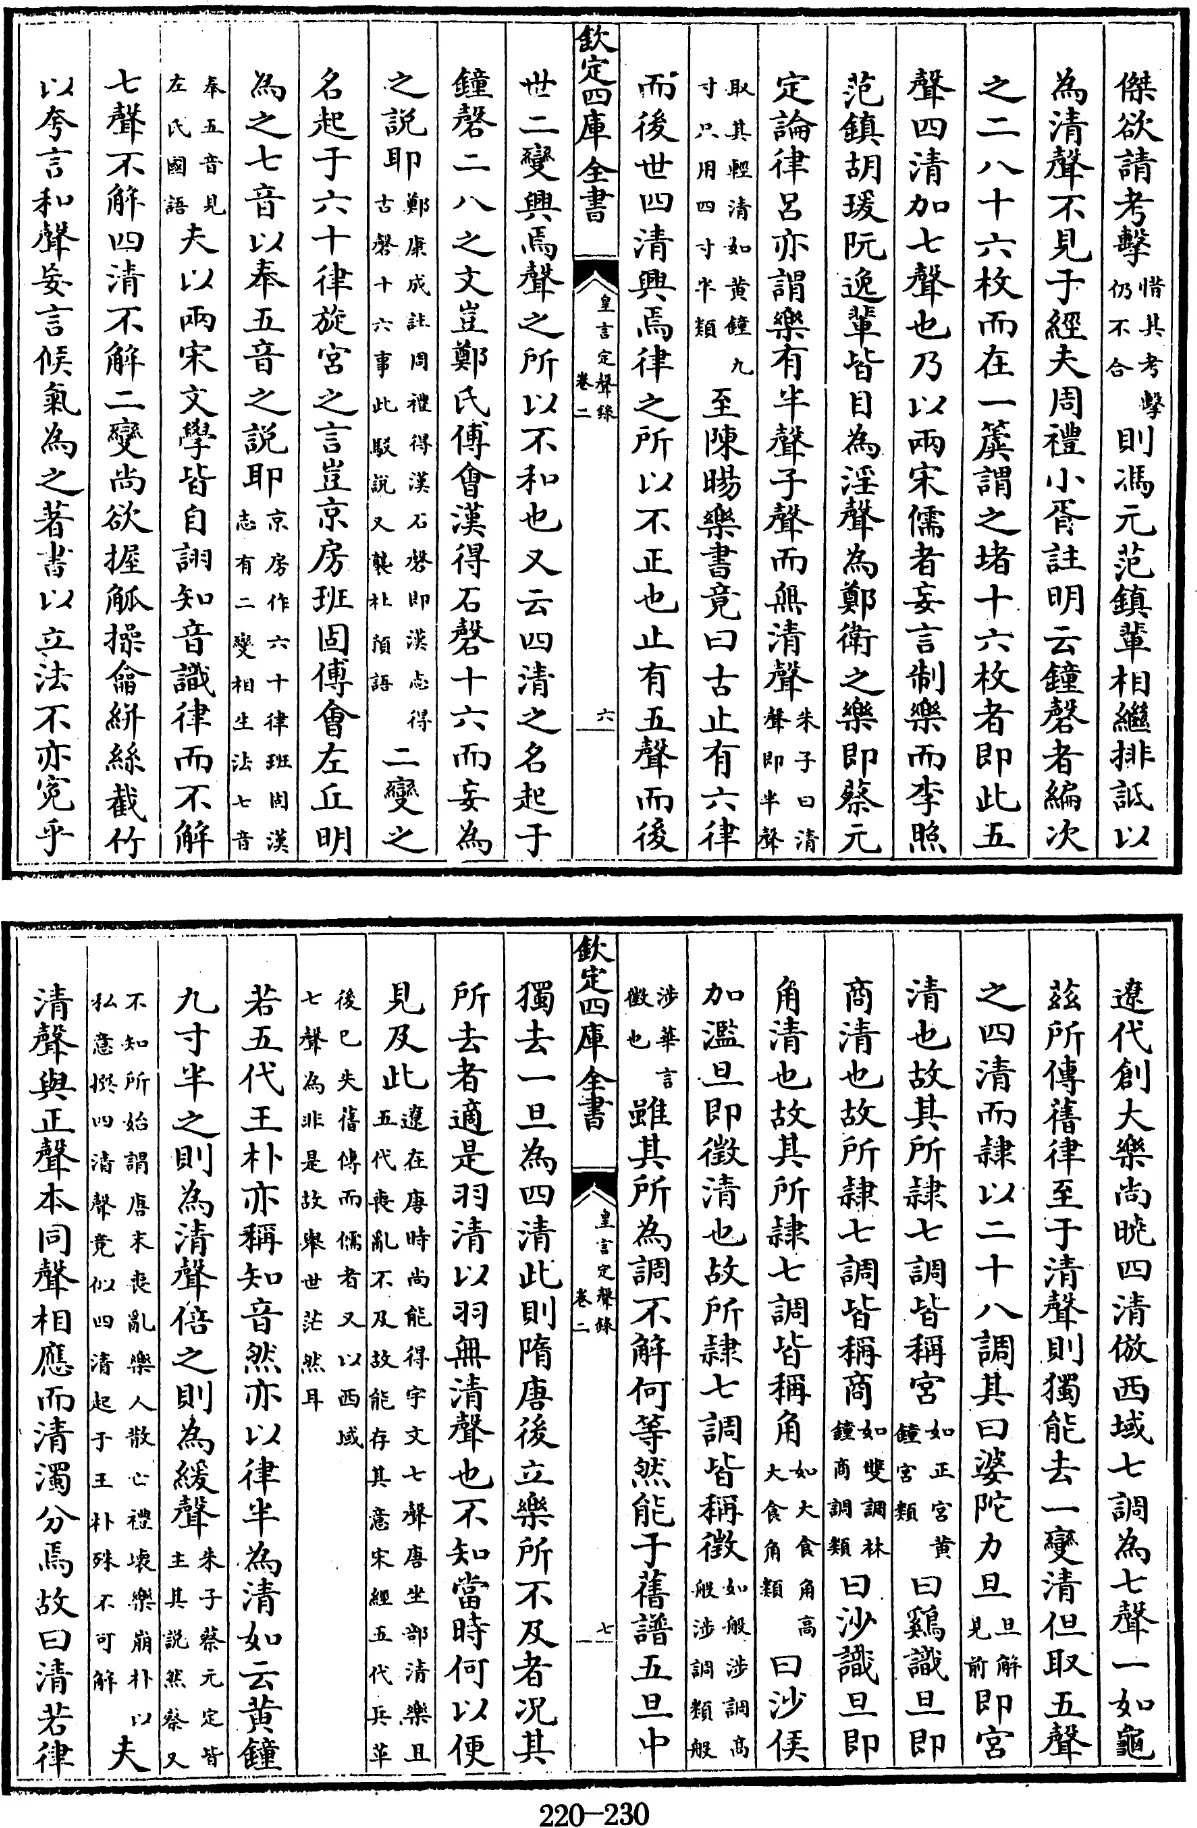 傑欲請考擊惜其考擊仍不合則馮元范鎮輩相繼排詆以
為清聲不見于經夫周禮小胥註明云鐘磬者編次
之二八十六枚而在一簴謂之堵十六枚者即此五
聲四清加七聲也乃以兩宋儒者妄言制樂而李照
范鎮胡瑗阮逸輩皆目為淫聲為鄭衛之樂即蔡元
定論律呂亦謂樂有半聲子聲而無清聲朱子曰清聲即半聲
取其輕清如黃鐘九寸只用四寸半類至陳暘樂書竟曰古止有六律
而後世四清興焉律之所以不正也止有五聲而後
欽定四庫全書
皇言定聲錄
卷二
六
世二變興焉聲之所以不和也又云四清之名起于
鐘磬二八之文豈鄭氏傅會漢得石磬十六而妄為
之説耶鄭康成註周禮得漢石磬即漢志得古磬十六事此駁説又襲杜預語二變之
名起于六十律旋宮之言豈京房班固傅會左丘明
為之七音以奉五音之説耶京房作六十律班固漢志有二變相生法七音
奉五音見左氏國語夫以兩宋文學皆自詡知音識律而不解
七聲不解四清不解二變尚欲握觚操龠絣絲截竹
以夸言和聲妄言候氣為之著書以立法不亦寃乎
遼代創大樂尚曉四清倣西域七調為七聲一如龜
茲所傳舊律至于清聲則獨能去一變清但取五聲
之四清而隷以二十八調其曰婆陀力旦旦解見前即宮
清也故其所隷七調皆稱宮如正宮黃鐘宮類曰鷄識旦即
商清也故所隷七調皆稱商如雙調林鐘商調類曰沙識旦即
角清也故其所隷七調皆稱角如大食角高大食角類曰沙侯
加濫旦即徵清也故所隷七調皆稱徵如般涉調高般涉調類般
涉華言徵也雖其所為調不解何等然能于舊譜五旦中
欽定四庫全書
皇言定聲錄
卷二
七
獨去一旦為四清此則隋唐後立樂所不及者況其
所去者適是羽清以羽無清聲也不知當時何以便
見及此遼在唐時尚能得宇文七聲唐坐部清樂且五代喪亂不及故能存其意宋經五代兵革
後已失舊傳而儒者又以西域七聲為非是故舉世茫然耳
若五代王朴亦稱知音然亦以律半為清如云黃鐘
九寸半之則為清聲倍之則為緩聲朱子蔡元定皆主其説然蔡又
不知所始謂唐末喪亂樂人散亡禮壞樂崩朴以私意撰四清聲竟似四清起于王朴殊不可解夫
清聲與正聲本同聲相應而清濁分焉故曰清若律
220—230